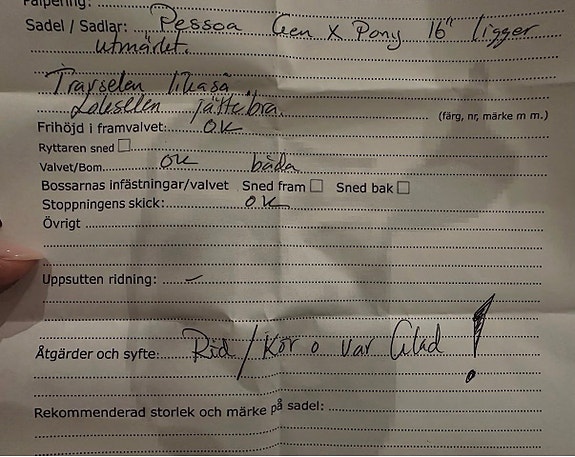 Palpering:
Sadel / Sadlar: Pessoa Gen X Pony 16" ligger
utmärkt.
Travselen likaså
jättebra.
(färg, nr, märke m m.)
Frihöjd i framvalvet: OK
Ryttaren sned
Valvet/Bom OK båda
Bossarnas infästningar/valvet Sned fram Sned bak
Stoppningens skick: OK
Övrigt
Uppsutten ridning: –
Åtgärder och syfte: Rid / Kör o var Glad !
Rekommenderad storlek och märke på sadel: